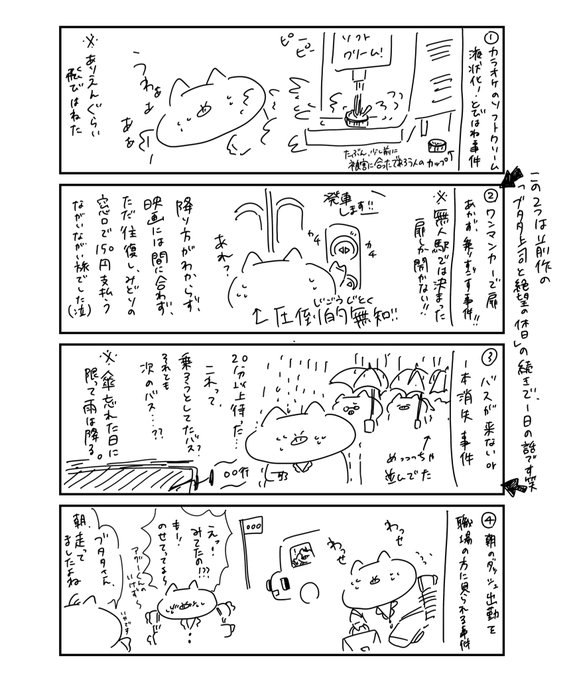 ①カラオケのソフトクリーム
液状化!とびはね事件
ソフト
クリーム!
ピー
ピー
うわぁぁ
ぁぁ
※ありえんぐらい
飛びはねた
たぶん、少し前に
被害に合ったであろう人のカップ↑
この2つは前作の
「ブタタ上司と絶望の休日」の続きで、一日の話です笑
②ワンマンカーで扉
あかず、乗りすごす事件!!
※無人駅では決まった
扉しか開かない!!
発車
します!!
カチ
カチ
あれ?
降り方がわからず、
映画には間に合わず、
ただ往復し、みどりの
窓口で150円支払う
ながいながい旅でした(泣)
じごうじとく
↑圧倒的無知!!
③バスが来ないor
一本消失事件
めっっっちゃ
並んでた
20分以上待った…
これって、
乗ろうとしてたバス?
それとも
次のバス…??
○○行
※傘忘れた日に
限って雨は降る。
④朝のダッシュ出勤を
職場の方に見られる事件
わっせ
わっせ
えっ!
みてたの!??
もー!
のせてってよ〜
ブタタさん、
朝、走って
ましたよね